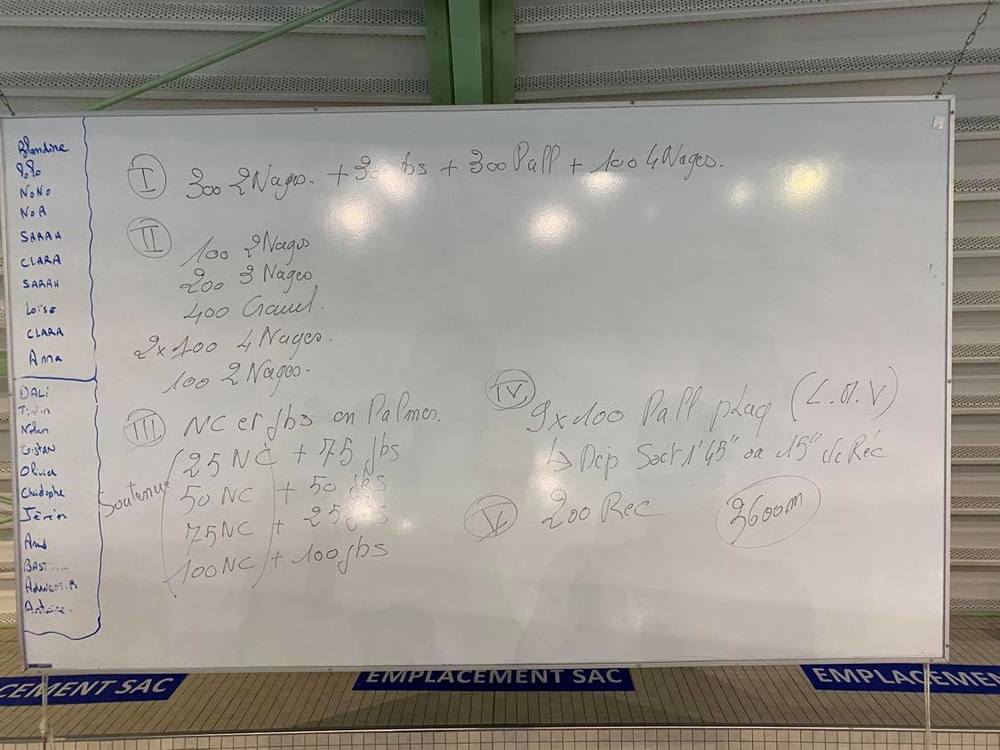 Blandine
NoNo
NoA
SARAH
CLARA
SARAH
Loïse
CLARA
Anna
DALI
Nolan
Tristan
Olivier
Christophe
Jérém
Anis
Antoine
I 300 2 Nages. + 300 jbs + 300 Pull + 100 4 Nages.
II
100 2 Nages
200 3 Nages
400 Crawl.
2x100 4 Nages.
100 2 Nages.
III NC et jbs en Palmes.
Soutenue
25 NC + 75 jbs
50 NC + 50 jbs
75 NC + 25 jbs
100 NC + 100 jbs
IV
9x100 Pull plaq (L.M.V)
↳ Dép Sact 1'45" ou 15" de Réc
V 200 Rec 3600m
EMPLACEMENT SAC
EMPLACEMENT SAC
EMPLACEMEN